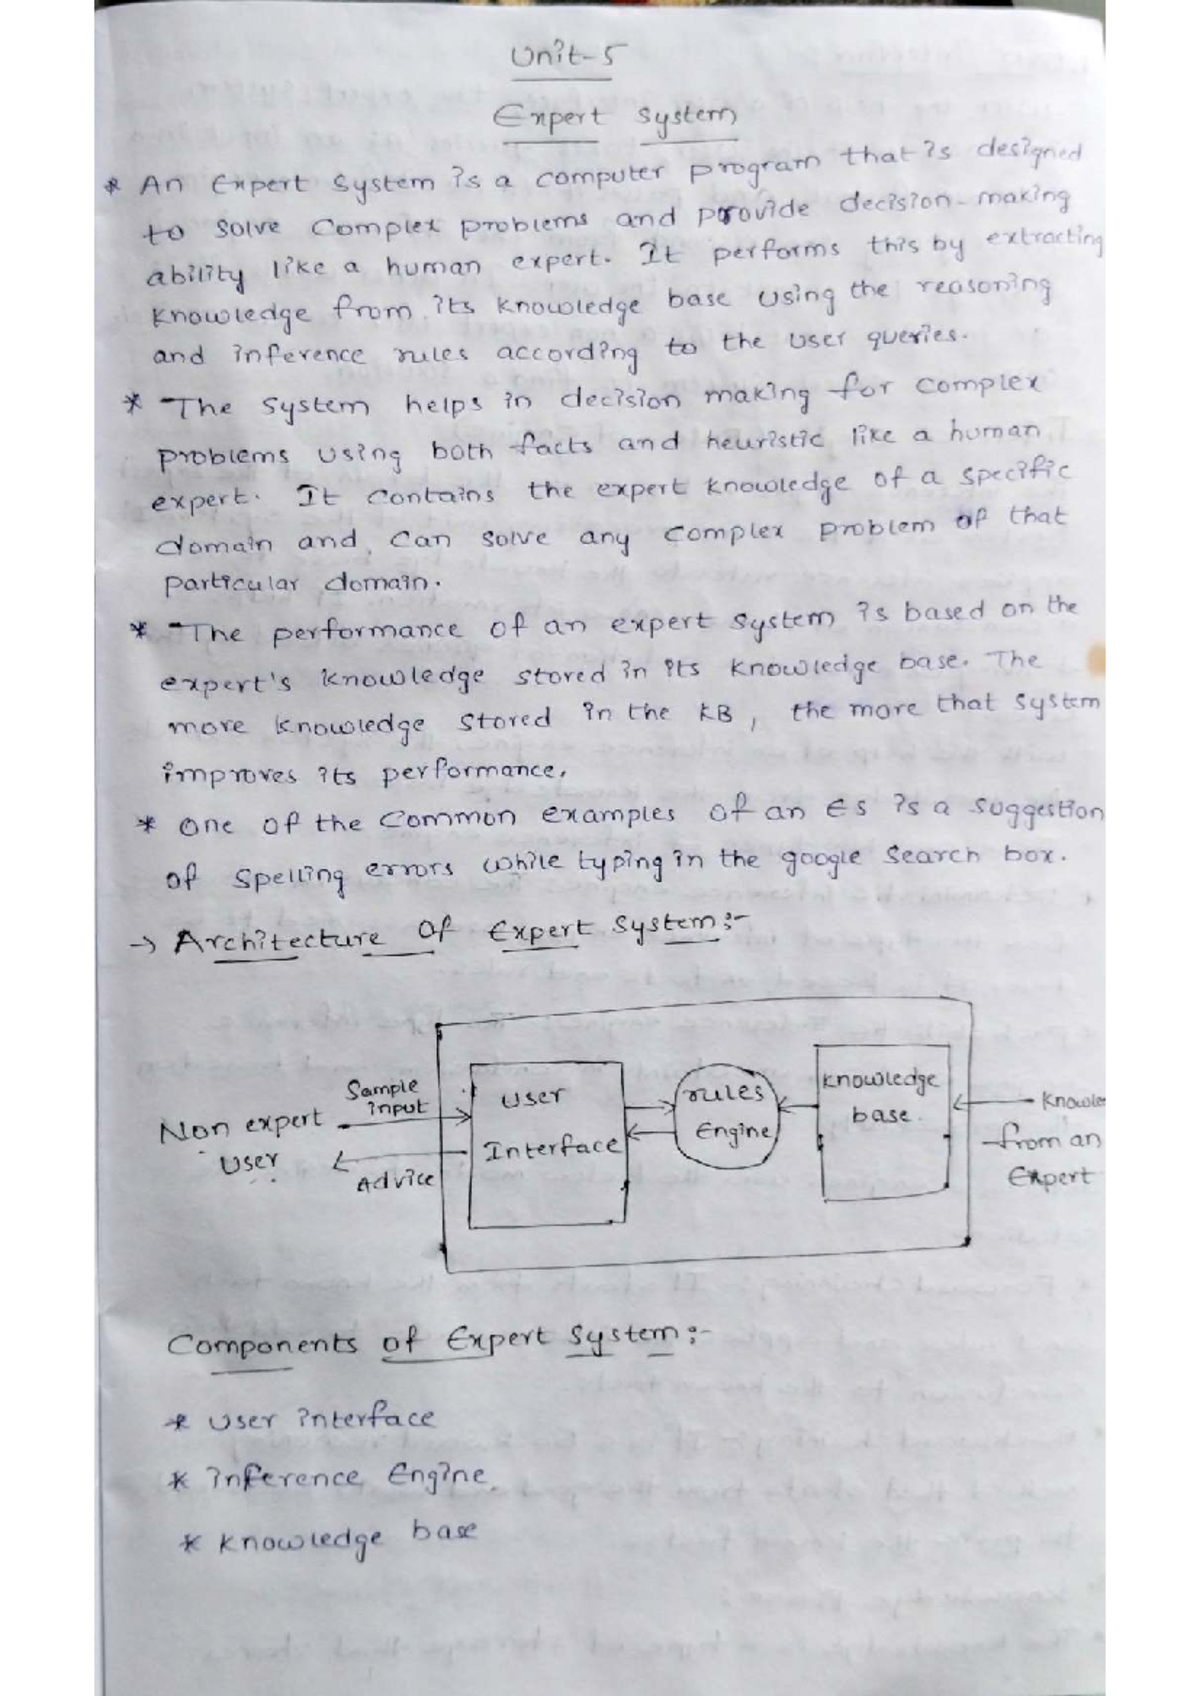 Unit-5
Expert System
* An Expert System is a computer program that is designed
to solve complex problems and provide decision-making
ability like a human expert. It performs this by extracting
knowledge from its knowledge base using the reasoning
and inference rules according to the user queries.
* The system helps in decision making for complex
problems using both facts and heuristic like a human
expert. It contains the expert knowledge of a specific
domain and can solve any complex problem of that
particular domain.
* The performance of an expert system is based on the
expert's knowledge stored in its knowledge base. The
more knowledge stored in the KB, the more that system
improves its performance.
* One of the common examples of an ES is a suggestion
of spelling errors while typing in the google search box.
→ Architecture of Expert System:-
Non expert
User
Sample
input
Advice
User
Interface
rules
Engine
knowledge
base.
Knowle
from an
Expert
Components of Expert System:-
* User interface
* inference Engine.
* knowledge base